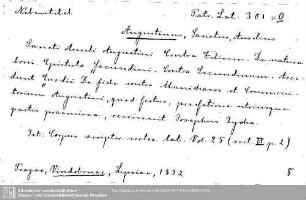 Nebentitel Patr. Lat. 301 = 0
Augustinus, Sanctus, Aurelius
Sancti Aureli Augustini Contra Felicem De natura
boni, Epistula Secundini, Contra Secundinum, Acce-
dunt Euodii De fide contra Manichaeos et Commoni-
torium Augustini, quod fertur, praefatione utriusque
partis praemissa, recensuit Josephus Zycha
Int: Corpus scriptor. eccles. lat. Vol. 25 (sect. VI p. 2)
Pragae, Vindobonae, Lipsiae, 1892